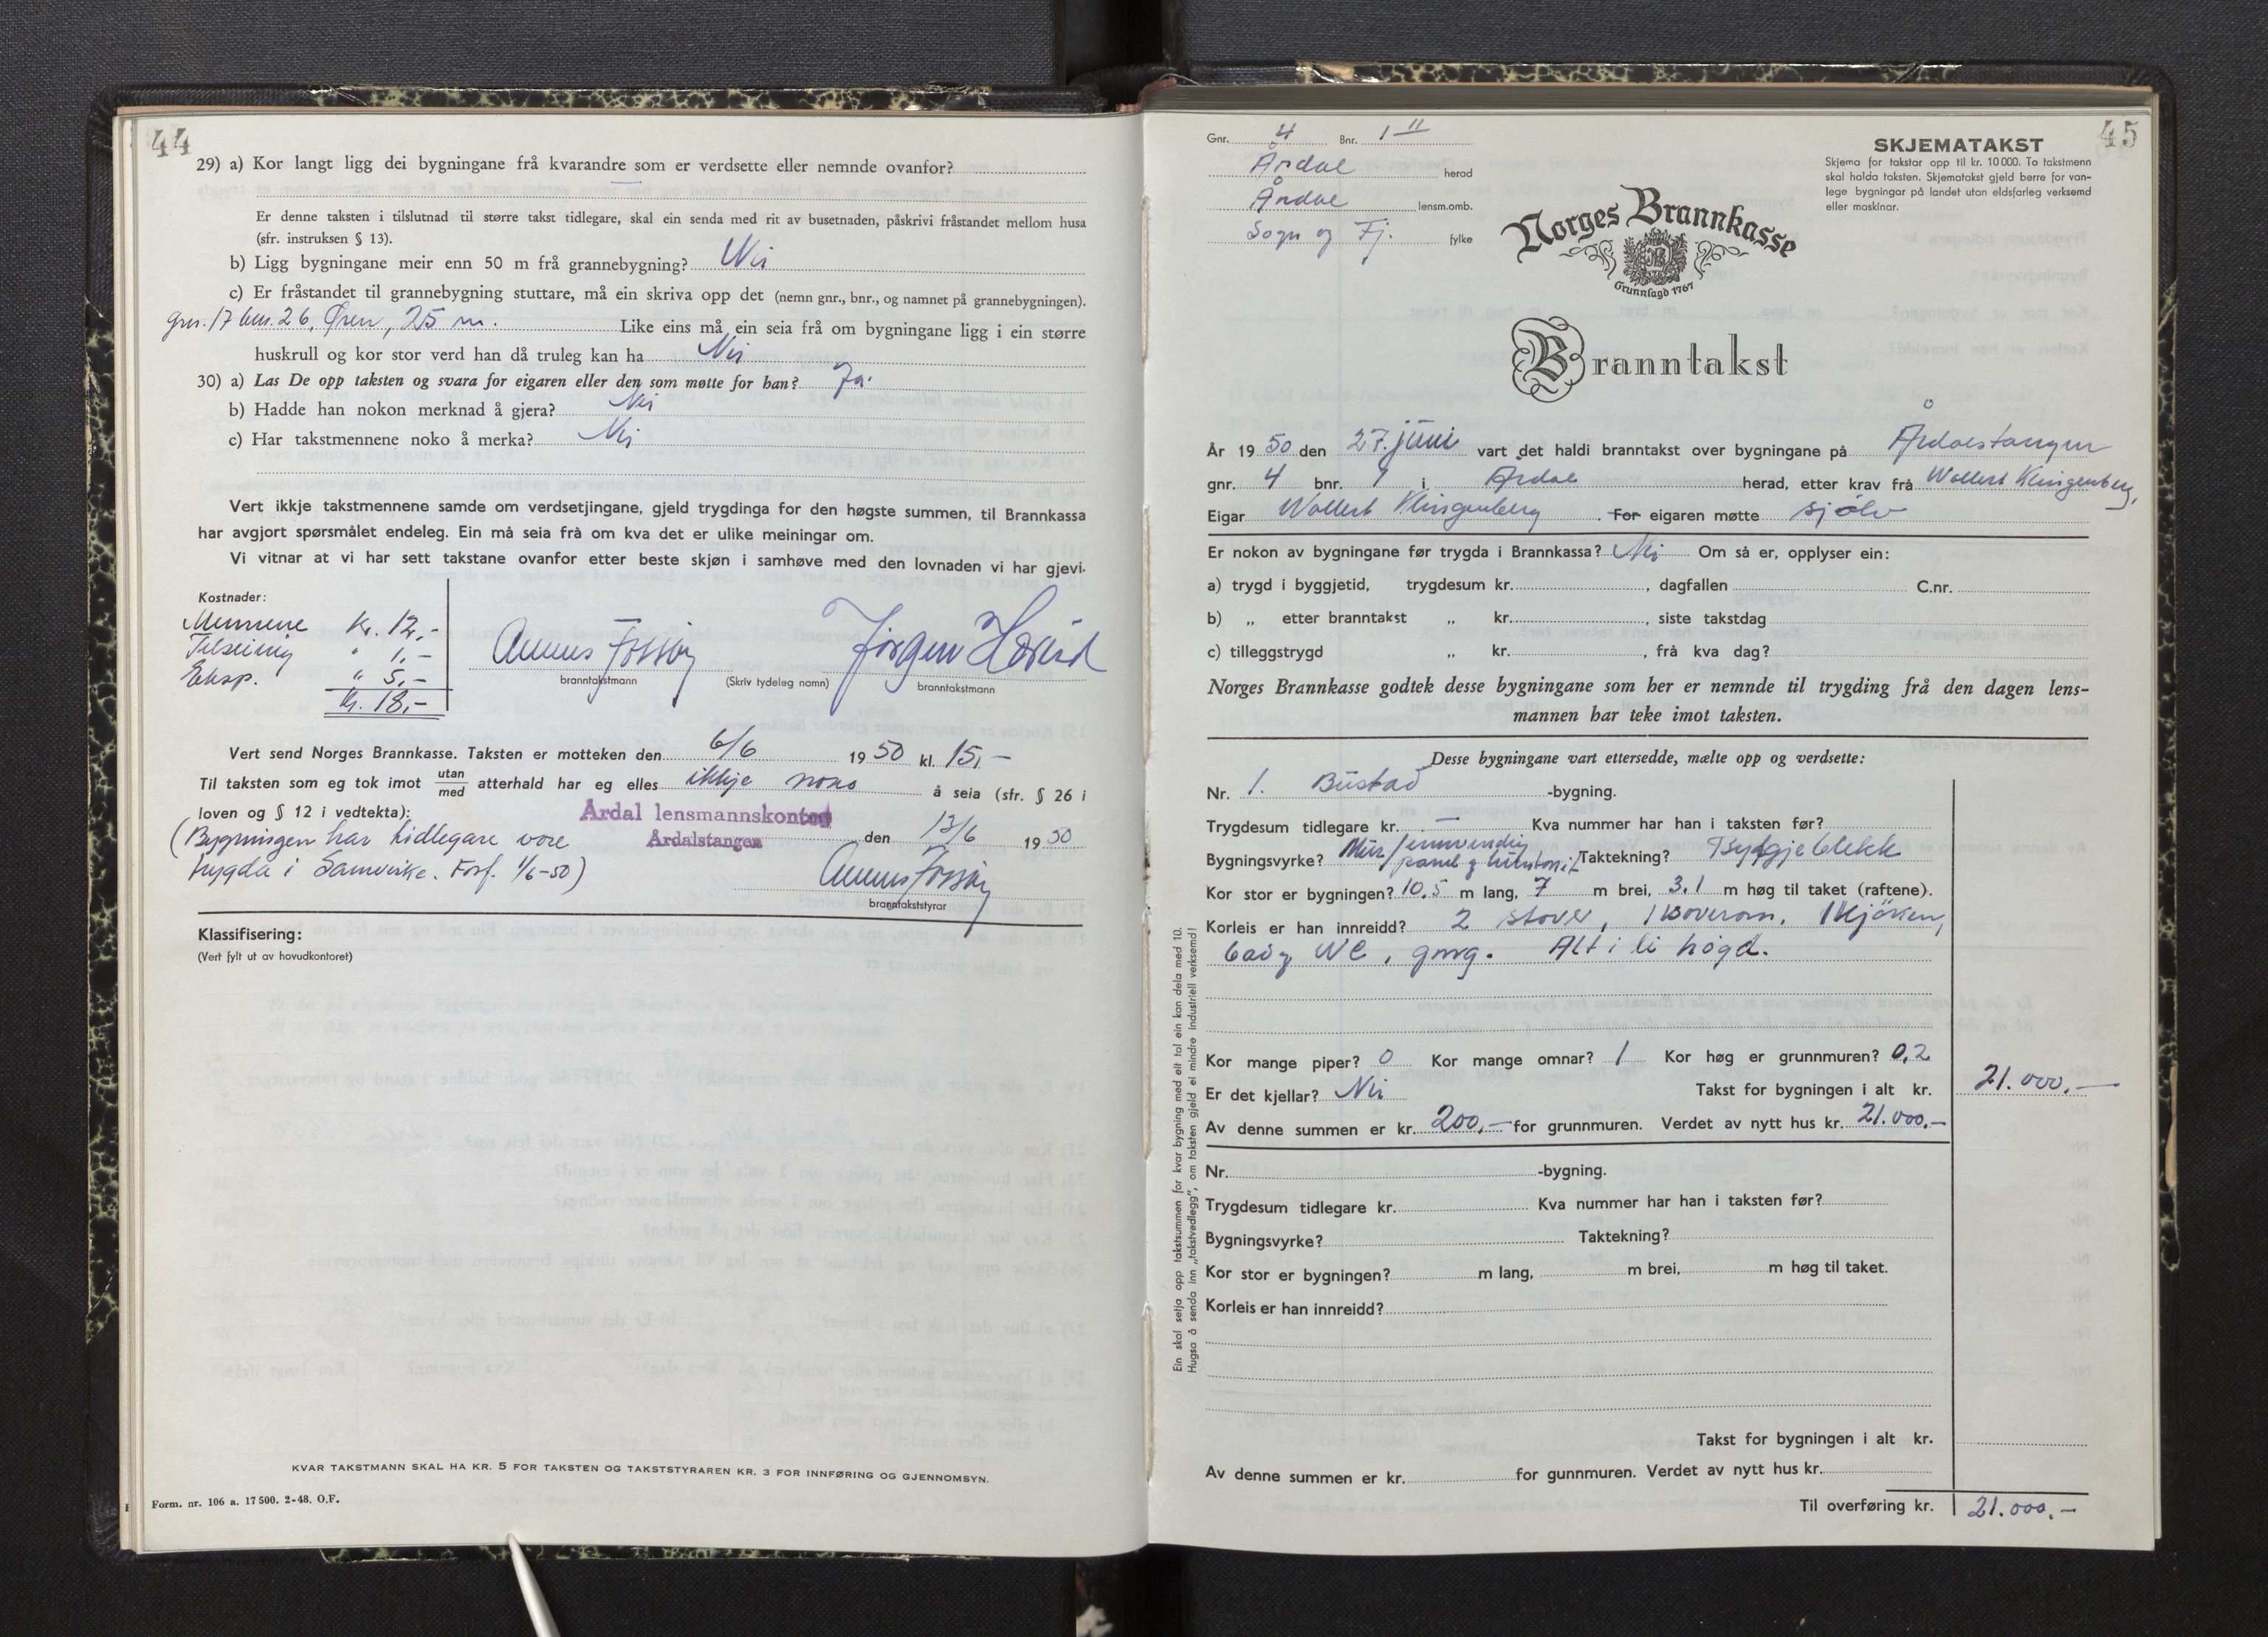 44
29) a) Kor langt ligg dei bygningane frå kvarandre som er verdsette eller nemnde ovanfor?
—
Er denne taksten i tilslutnad til større takst tidlegare, skal ein senda med rit av busetnaden, påskrivi fråstandet mellom husa
(sfr. instruksen § 13).
b) Ligg bygningane meir enn 50 m frå grannebygning? Nei
c) Er fråstandet til grannebygning stuttare, må ein skriva opp det (nemn gnr., bnr., og namnet på grannebygningen).
gnr. 17 bnr. 26, Øren, 25 m. Like eins må ein seia frå om bygningane ligg i ein større
huskrull og kor stor verd han då truleg kan ha Nei
30) a) Las De opp taksten og svara for eigaren eller den som møtte for han? Ja.
b) Hadde han nokon merknad å gjera? Nei
c) Har takstmennene noko å merka? Nei
Vert ikkje takstmennene samde om verdsetjingane, gjeld trygdinga for den høgste summen, til Brannkassa
har avgjort spørsmålet endeleg. Ein må seia frå om kva det er ulike meiningar om.
Vi vitnar at vi har sett takstane ovanfor etter beste skjøn i samhøve med den lovnaden vi har gjevi.
Kostnader:
Mennene kr. 12,-
Tilseiing " 1,-
Eksp. " 5,-
Kr. 18,-
Jørgen
branntakstmann (Skriv tydeleg namn) branntakstmann
Vert send Norges Brannkasse. Taksten er motteken den 6/6 1950 kl. 15,-
Til taksten som eg tok imot utan/med atterhald har eg elles ikkje noko å seia (sfr. § 26 i
loven og § 12 i vedtekta):
Årdal lensmannskontor
Årdalstangen den 13/6 1950
(Bygningen har tidlegare vore
trygda i Samvirke. Forf. 1/6-50)
branntakststyrar
Klassifisering:
(Vert fylt ut av hovudkontoret)
KVAR TAKSTMANN SKAL HA KR. 5 FOR TAKSTEN OG TAKSTSTYRAREN KR. 3 FOR INNFØRING OG GJENNOMSYN.
Form. nr. 106 a. 17 500. 2-48. O.F.
45
Gnr. 4 Bnr. 1 II
Årdal herad
Årdal lensm.omb.
Sogn og Fj. fylke
SKJEMATAKST
Skjema for takstar opp til kr. 10 000. To takstmenn
skal halda taksten. Skjematakst gjeld berre for van-
lege bygningar på landet utan eldsfarleg verksemd
eller maskinar.
Norges Brannkasse
Grunnlagd 1767
Branntakst
År 1950 den 27. juni vart det haldi branntakst over bygningane på Årdalstangen
gnr. 4 bnr. 1 i Årdal herad, etter krav frå Wollert Klingenberg,
Eigar Wollert Klingenberg. For eigaren møtte sjølv
Er nokon av bygningane før trygda i Brannkassa? Nei Om så er, opplyser ein:
a) trygd i byggjetid, trygdesum kr. , dagfallen C.nr.
b) „ etter branntakst „ kr. , siste takstdag
c) tilleggstrygd „ kr. , frå kva dag?
Norges Brannkasse godtek desse bygningane som her er nemnde til trygding frå den dagen lens-
mannen har teke imot taksten.
Desse bygningane vart ettersedde, mælte opp og verdsette:
Nr. 1. Bustad -bygning.
Trygdesum tidlegare kr. — Kva nummer har han i taksten før?
Bygningsvyrke? Mur/innvendig panel og huntonit Taktekning? Bylgjeblekk
Kor stor er bygningen? 10.5 m lang, 7 m brei, 3.1 m høg til taket (raftene).
Korleis er han innreidd? 2 stover, 1 soverom, 1 kjøken,
bad og WC, gang. Alt i ei høgd.
Kor mange piper? 0 Kor mange omnar? 1 Kor høg er grunnmuren? 0,2
Er det kjellar? Nei Takst for bygningen i alt kr. 21.000,—
Av denne summen er kr. 200,— for grunnmuren. Verdet av nytt hus kr. 21.000,—
Nr. -bygning.
Trygdesum tidlegare kr. Kva nummer har han i taksten før?
Bygningsvyrke? Taktekning?
Kor stor er bygningen? m lang, m brei, m høg til taket.
Korleis er han innreidd?
Takst for bygningen i alt kr.
Av denne summen er kr. for gunnmuren. Verdet av nytt hus kr.
Til overføring kr. 21.000,—
Ein skal setja opp takstsummen for kvar bygning med eit tal ein kan dela med 10.
Hugsa å senda inn „takstvedlegg", om taksten gjeld ei mindre industriell verksemd!